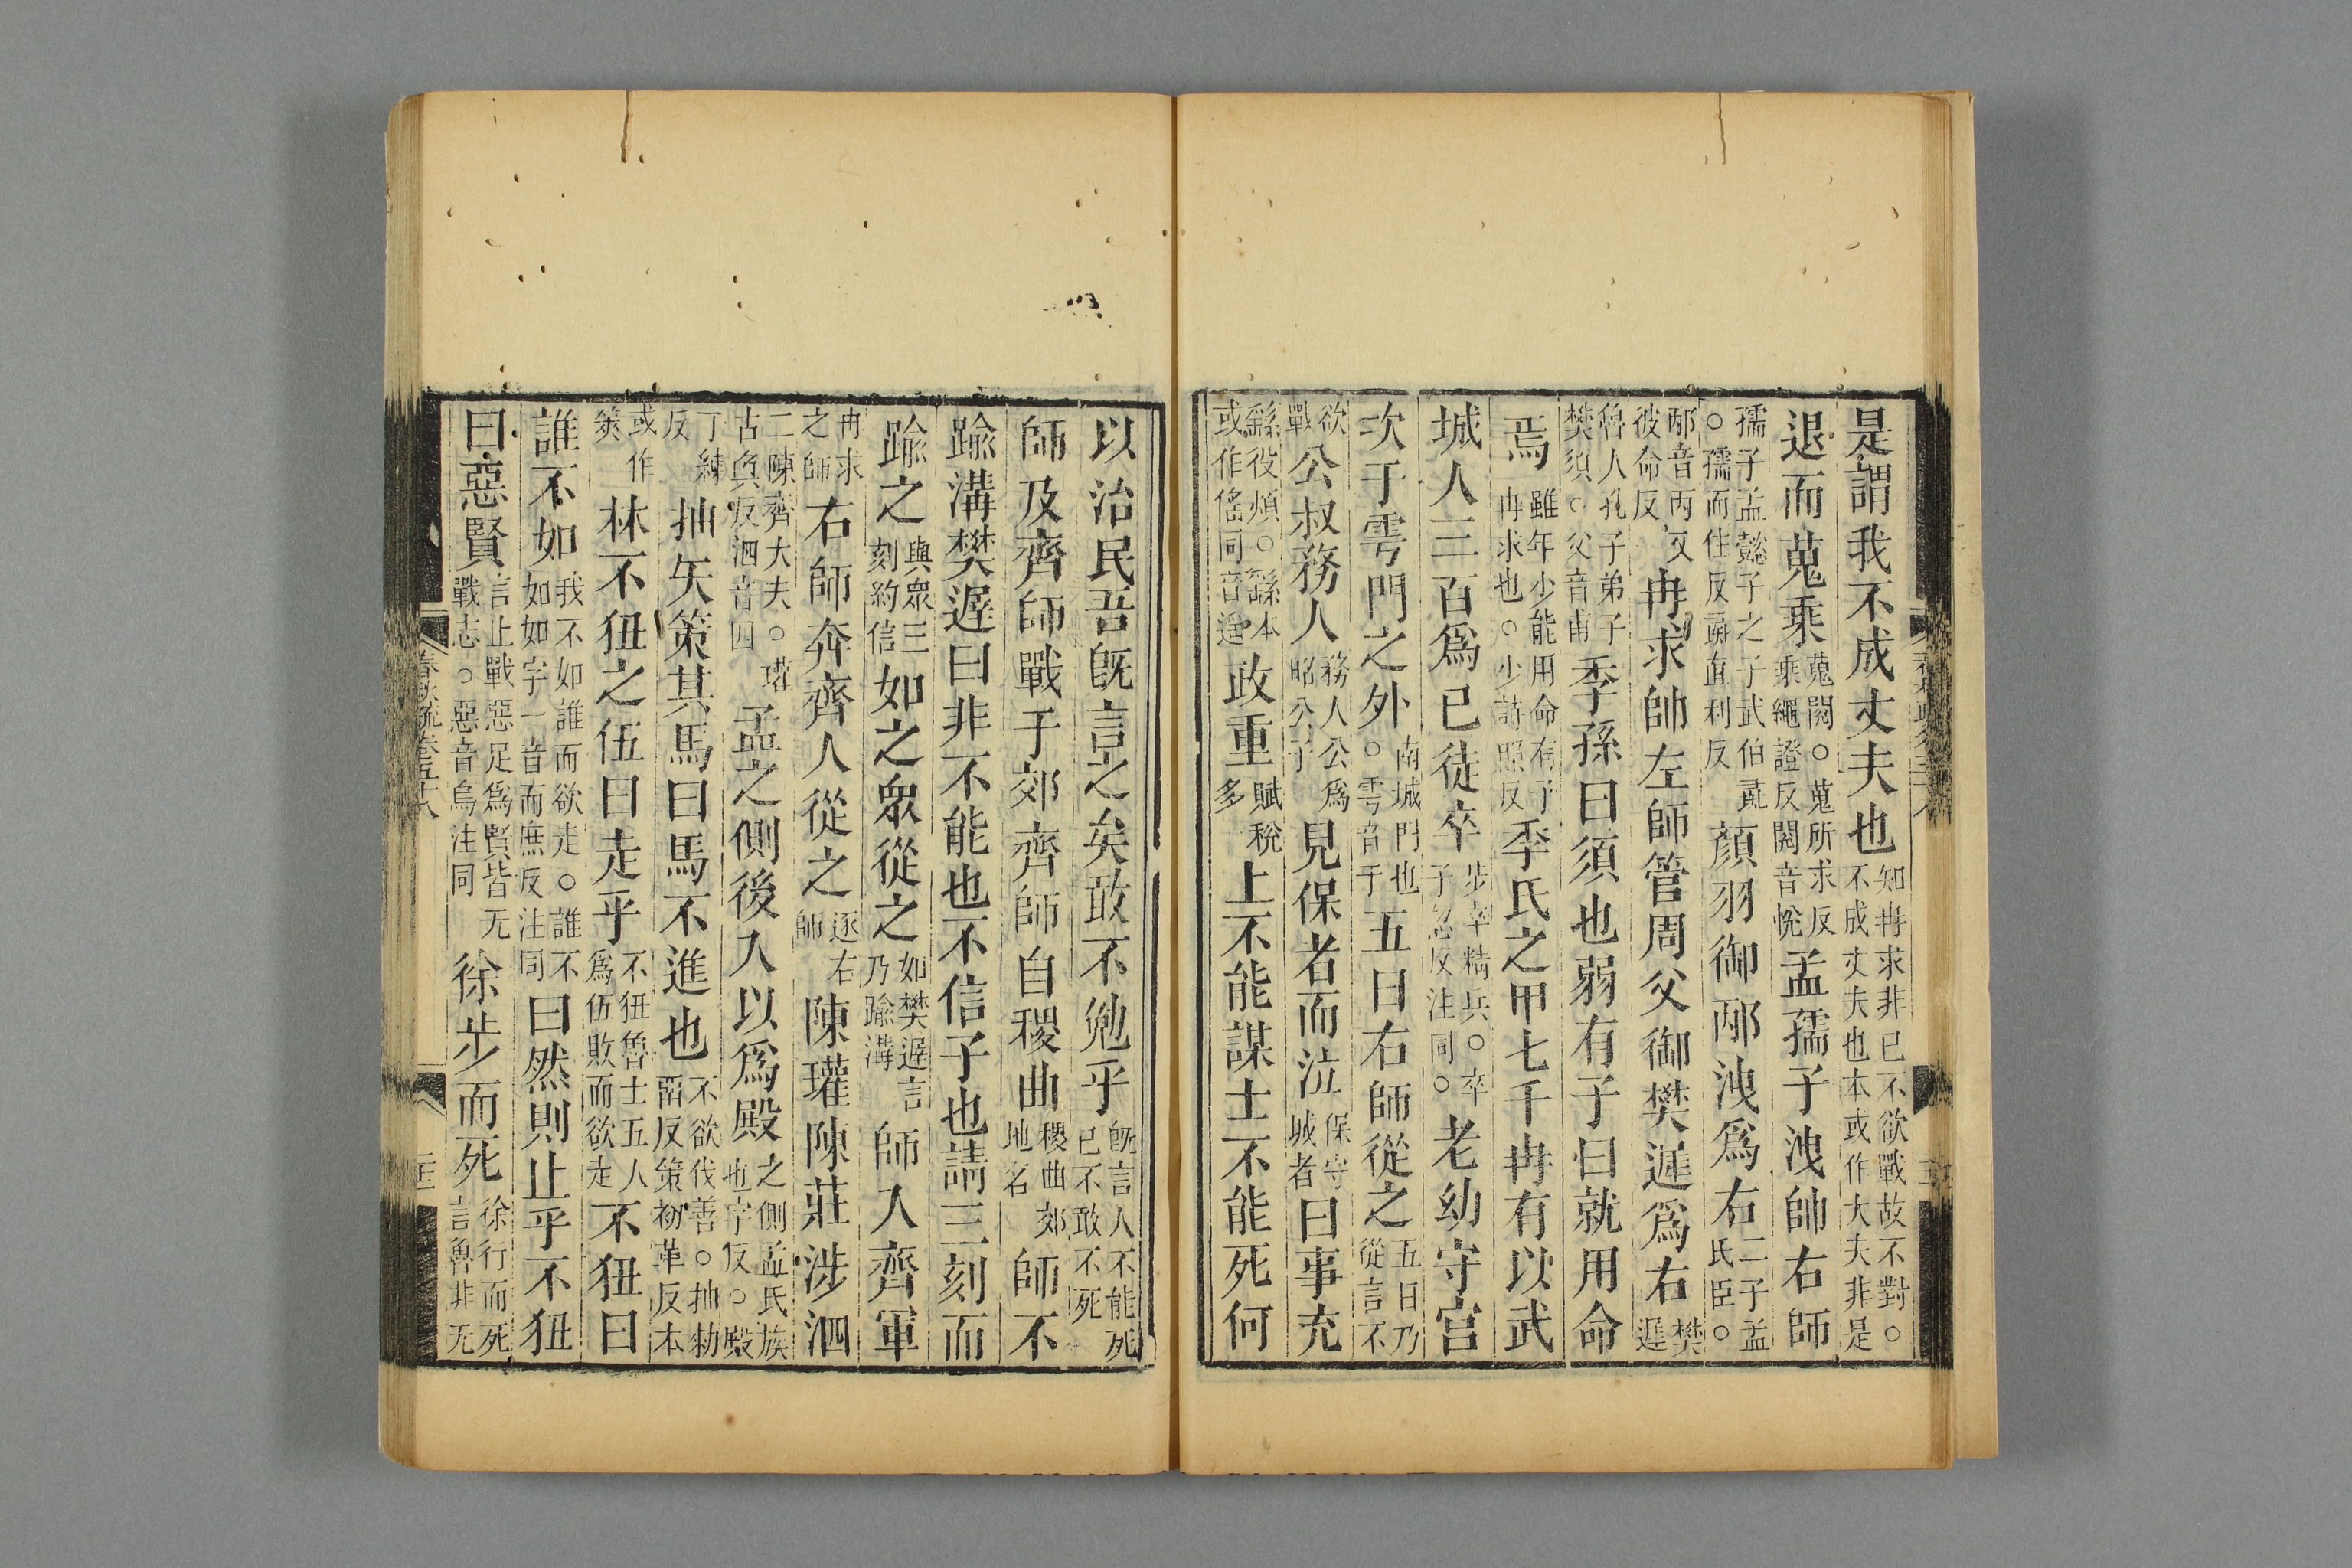 是謂我不成丈夫也知冉求非已不欲戰故不對○不成丈夫也本或作大夫非是
退而蒐乘蒐閱○蒐所求反乘繩證反閱音悅孟孺子洩帥右師
孺子孟懿子之子武伯彘○孺而住反彘直利反顏羽御邴洩爲右二子孟氏臣○
邴音丙又彼命反冉求帥左師管周父御樊遲爲右樊遲
魯人孔子弟子樊須○父音甫季孫曰須也弱有子曰就用命
焉雖年少能用命有子冉求也○少詩照反季氏之甲七千冉有以武
城人三百爲已徒卒步卒精兵○卒子忽反注同○老幼守宫
次于雩門之外南城門也○雩音于五日右師從之五日乃從言不
欲戰公叔務人務人公爲昭公子見保者而泣保守城者曰事充
繇役煩○繇本或作傜同音遥政重賦稅多上不能謀士不能死何
以治民吾旣言之矣敢不勉乎旣言人不能死已不敢不死
師及齊師戰于郊齊師自稷曲稷曲郊地名師不
踰溝樊遲曰非不能也不信子也請三刻而
踰之與眾三刻約信如之眾從之如樊遲言乃踰溝師入齊軍
冉求之師右師奔齊人從之逐右師陳瓘陳莊涉泗
二陳齊大夫○瓘古奐反泗音四孟之側後入以爲殿之側孟氏族也字反○殿
丁練反抽矢策其馬曰馬不進也不欲伐善○抽勑留反策初革反本
或作筴林不狃之伍曰走乎不狃魯士五人爲伍敗而欲走不狃曰
誰不如我不如誰而欲走○誰不如如字一音而庶反注同曰然則止乎不狃
曰惡賢言止戰惡足爲賢皆无戰志○惡音烏注同徐步而死徐行而死言魯非无
春秋疏卷五十八